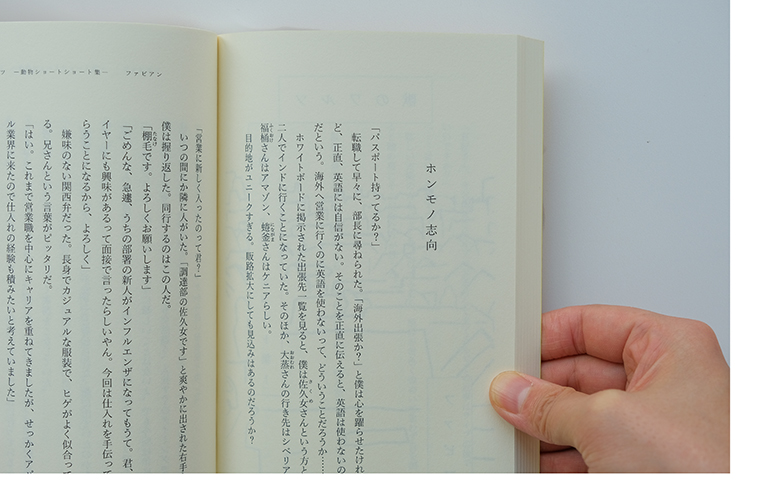 ホンモノ志向
「パスポート持ってるか？」
転職して早々に、部長に尋ねられた。「海外出張か？」と僕は心を躍らせたけれ
ど、正直、英語には自信がない。そのことを正直に伝えると、英語は使わないの
だという。海外へ営業に行くのに英語を使わないって、どういうことだろうか……
ホワイトボードに掲示された出張先一覧を見ると、僕は佐久女さんという方と
二人でインドに行くことになっていた。そのほか、大蒸さんの行き先はシベリア
福桶さんはアマゾン、蜷釜さんはケニアらしい。
目的地がユニークすぎる。販路拡大にしても見込みはあるのだろうか？
ー動物ショートショート集ー ファビアン
「営業に新しく入ったのって君？」
いつの間にか隣に人がいた。「調達部の佐久女です」と爽やかに出された右手
僕は握り返した。同行するのはこの人だ。
「棚毛です。よろしくお願いします」
「ごめんな、急遽、うちの部署の新人がインフルエンザになってもうて。君、
イヤーにも興味があるって面接で言ったらしいやん。今回は仕入れを手伝って
らうことになるから、よろしく」
嫌味のない関西弁だった。長身でカジュアルな服装で、ヒゲがよく似合って
る。兄さんという言葉がピッタリだ。
「はい。これまで営業職を中心にキャリアを重ねてきましたが、せっかくアパ
ル業界に来たので仕入れの経験も積みたいと考えていました」